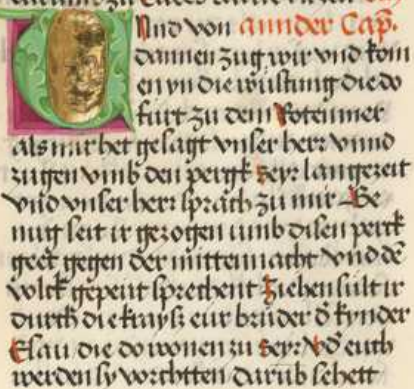 Unnd von annder Cap.
dannen zug wir vnd kom
en yn die wüstung die do
furt zu dem Rotenmer
als mir het gesagt vnser herr vnnd
zugen vmb den pergk Seyr lange zeit
vnd vnser herr sprach zu mir Ge
nug seit ir gezogen umb disen perck
geet gegen der mitternacht vnd dē
volck gepeut sprechent Ziehen sült ir
durch die krayß eur brüder d̄ kynder
Esau die do wonen zu Seyr vō euch
werden sy vorchtten darūb sehett